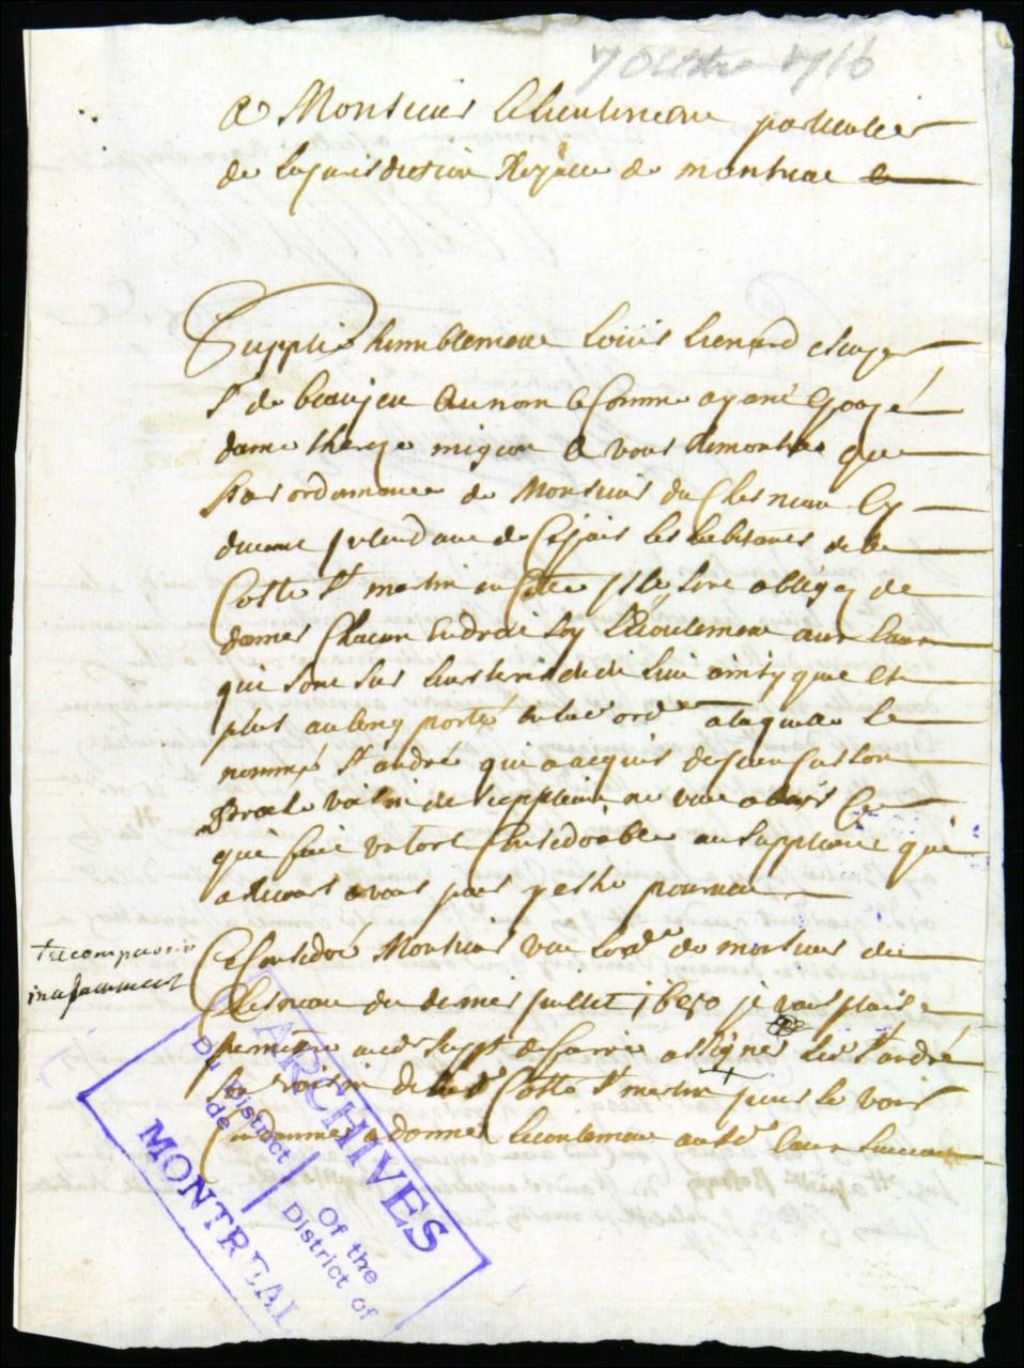 7 Octobre 1716
A Monsieur le lieutenent particulier
de la jurisdiction Royalle de montreal
Supplie humblement Louis Lienard escuyer
Sr de beaujeu au nom et Comme ayant Epouzé
dame thereze migeon et vous remontre que
par ordonnance de Monsieur du Chesneau cy
devant jntendant de Ce pais les habitants de la
Coste St martin en Cette jsle sont obligez de
donner Chacun endroit soy l'Ecoulement aux Eaux
qui sont sur leurs terres ainsy que est
plus au long porté en lad ordce a laquelle le
nommé St andré qui a acquis de
voisin de suppliant ne veut obeir Ce
qui fait un tort Considerable au suppliant qui
a recours a vous pour y estre pourveu
Ce Consideré Monsieur veu lordce de monsieur du
Chesneau du dernier juillet 1680 jl vous plaise
permettre aud suppt de faire assigner led St andré
son voisin de lad Coste St martin + pour se voir
Condamner a donner lecoulement ausd Eaux suivant
+ a comparoir
incessamment
ARCHIVES
Du District
de
MONTREAL
Of the
District of